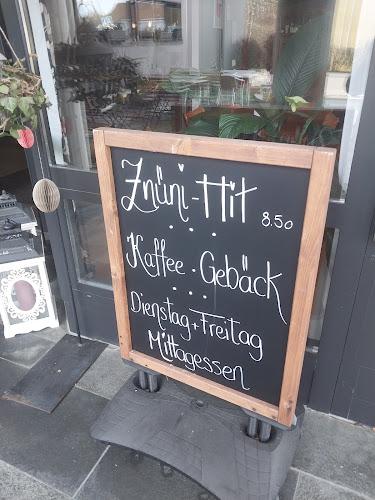 Znüni-Hit
8.50
Kaffee · Gebäck
Dienstag + Freitag
Mittagessen